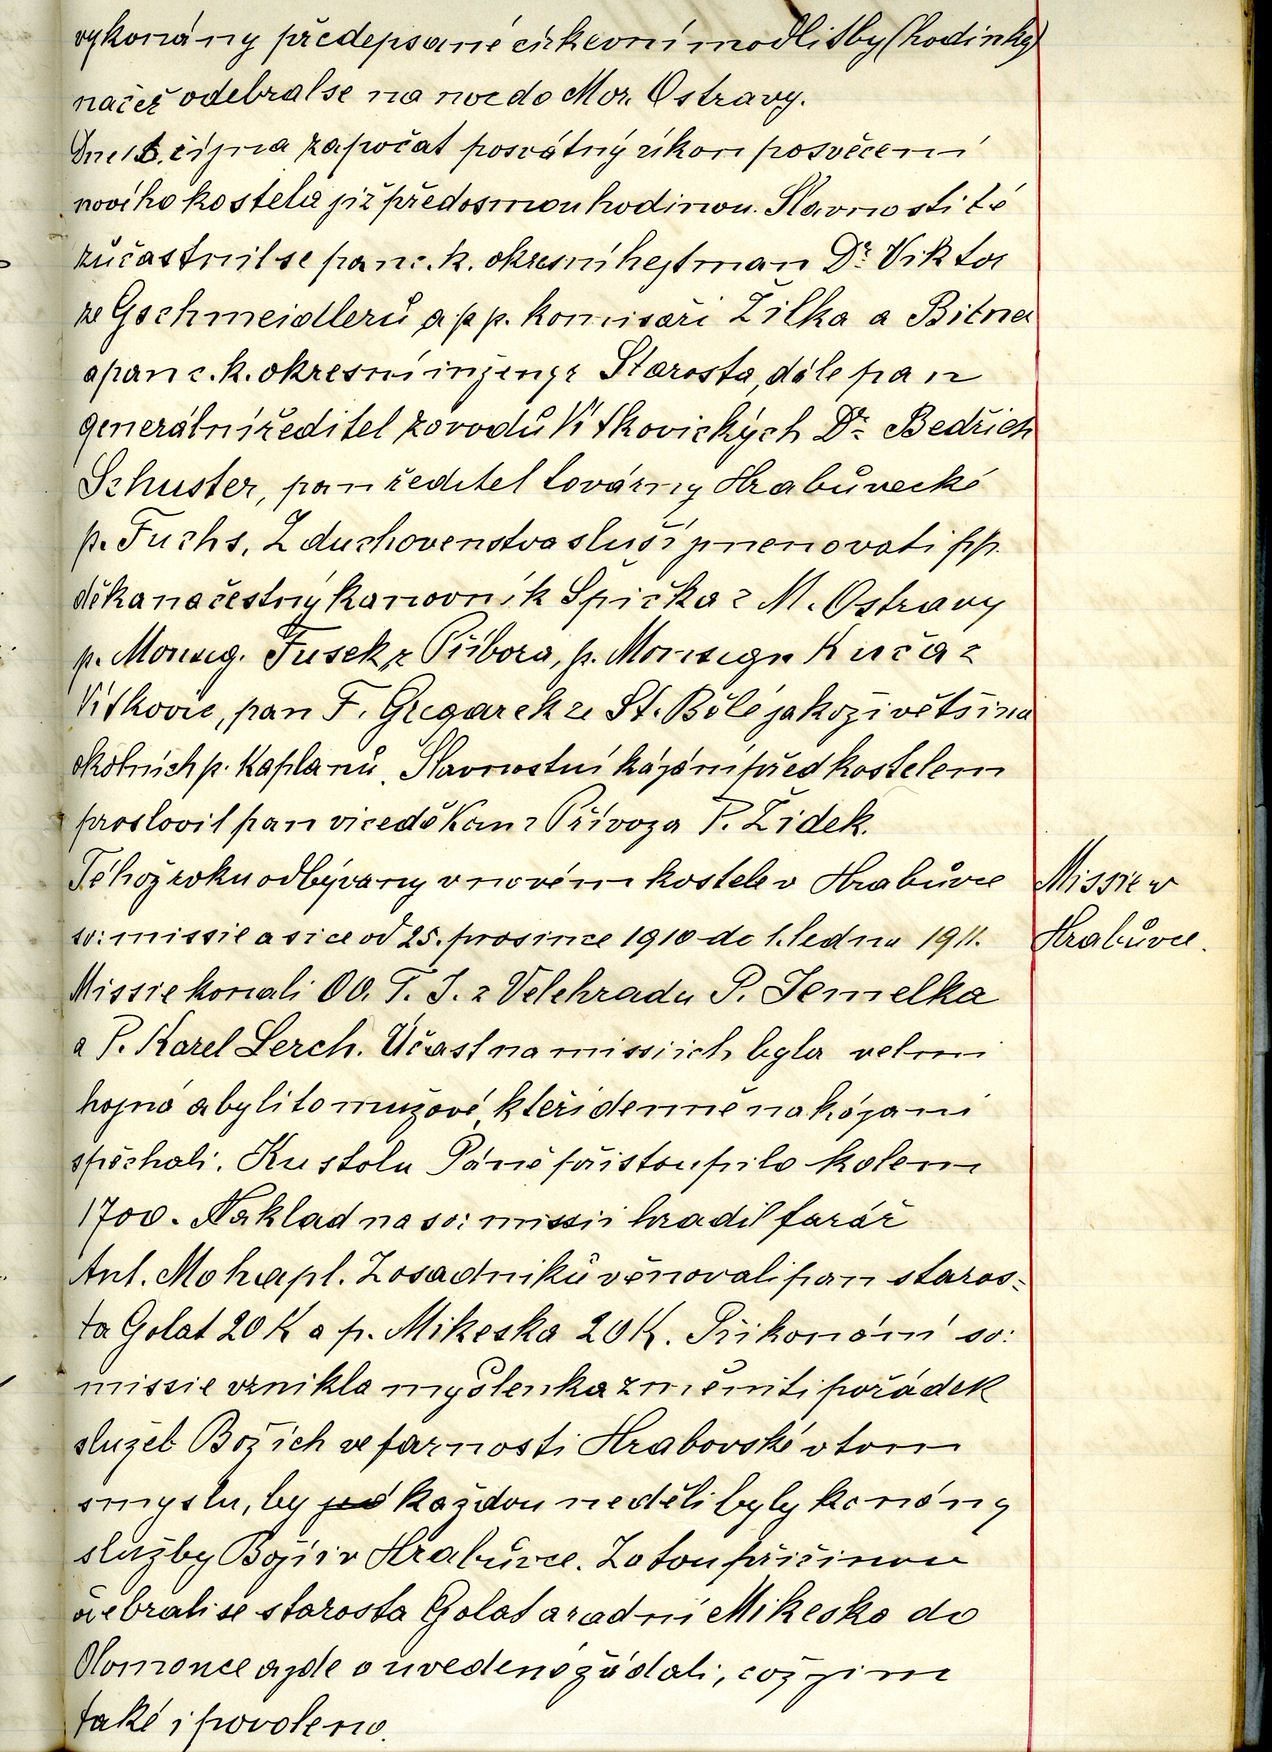 vykonány předepsané církevní modlitby (hodinky)
načež odebral se na noc do Mor. Ostravy.
Dne 16. října započat posvátný úkon posvěcení
nového kostela již před osmou hodinou. Slavnosti té
zúčastnil se pan c. k. okresní hejtman Dr. Viktor
ze Gschmeidlerů a pp. komisaři Žilka a Bitna
a pan c. k. okresní inženýr Starosta, dále pan
generální ředitel závodů Vítkovických Dr. Bedřich
Schuster, pan ředitel továrny Hrabůvecké
p. Fuchs. Z duchovenstva sluší jmenovati pp.
děkana čestný kanovník Špička z M. Ostravy
p. Monsig. Fusek z Příbora, p. Monsign Kuča z
Vítkovic, pan F. Gregarek ze St. Bělé jakož i většina
okolních p. kaplanů. Slavnostní kázání před kostelem
proslovil pan viceděkan z Přívoza P. Židek.
Téhož roku odbývany v novém kostele v Hrabůvce
sv: missie a sice od 25. prosince 1910 do 1. ledna 1911.
Missie v
Hrabůvce.
Missie konali OO. T. J. z Velehradu P. Jemelka
a P. Karel Lerch. Účast na missiich byla velmi
hojná a byli to mužové, kteří denně na kázaní
spěchali. Ku stolu Páně přistoupilo kolem
1700. Náklad na sv: missii hradil farář
Ant. Mohapl. Z osadníků věnovali pan staros-
ta Golat 20 K a p. Mikeska 20 K. Při konání sv:
missie vznikla myšlenka změniti pořádek
služeb Božích ve farnosti Hrabovské v tom
smyslu, by každou neděli byly konány
služby Boží i v Hrabůvce. Za tou příčinou
odebrali se starosta Golat a radní Mikeska do
Olomouce a zde o uvedené žádali, což jim
také i povoleno.